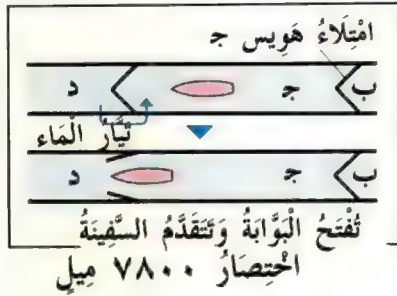 امْتِلَاءُ هَوِيس ج
ب ج د
تَيَّارُ الْمَاء
ب ج د
تُفْتَحُ الْبَوَّابَةُ وَتَتَقَدَّمُ السَّفِينَةُ
اخْتِصَارُ ٧٨٠٠ مِيلٍ